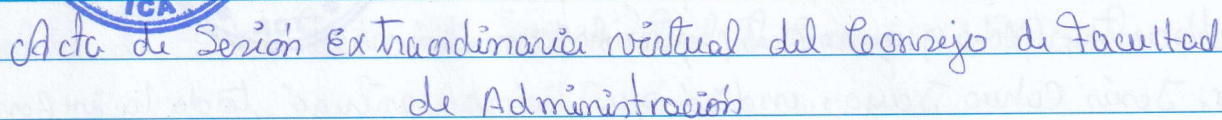 ICA
Acta de Sesión Extraordinaria virtual del Consejo de Facultad
de Administración